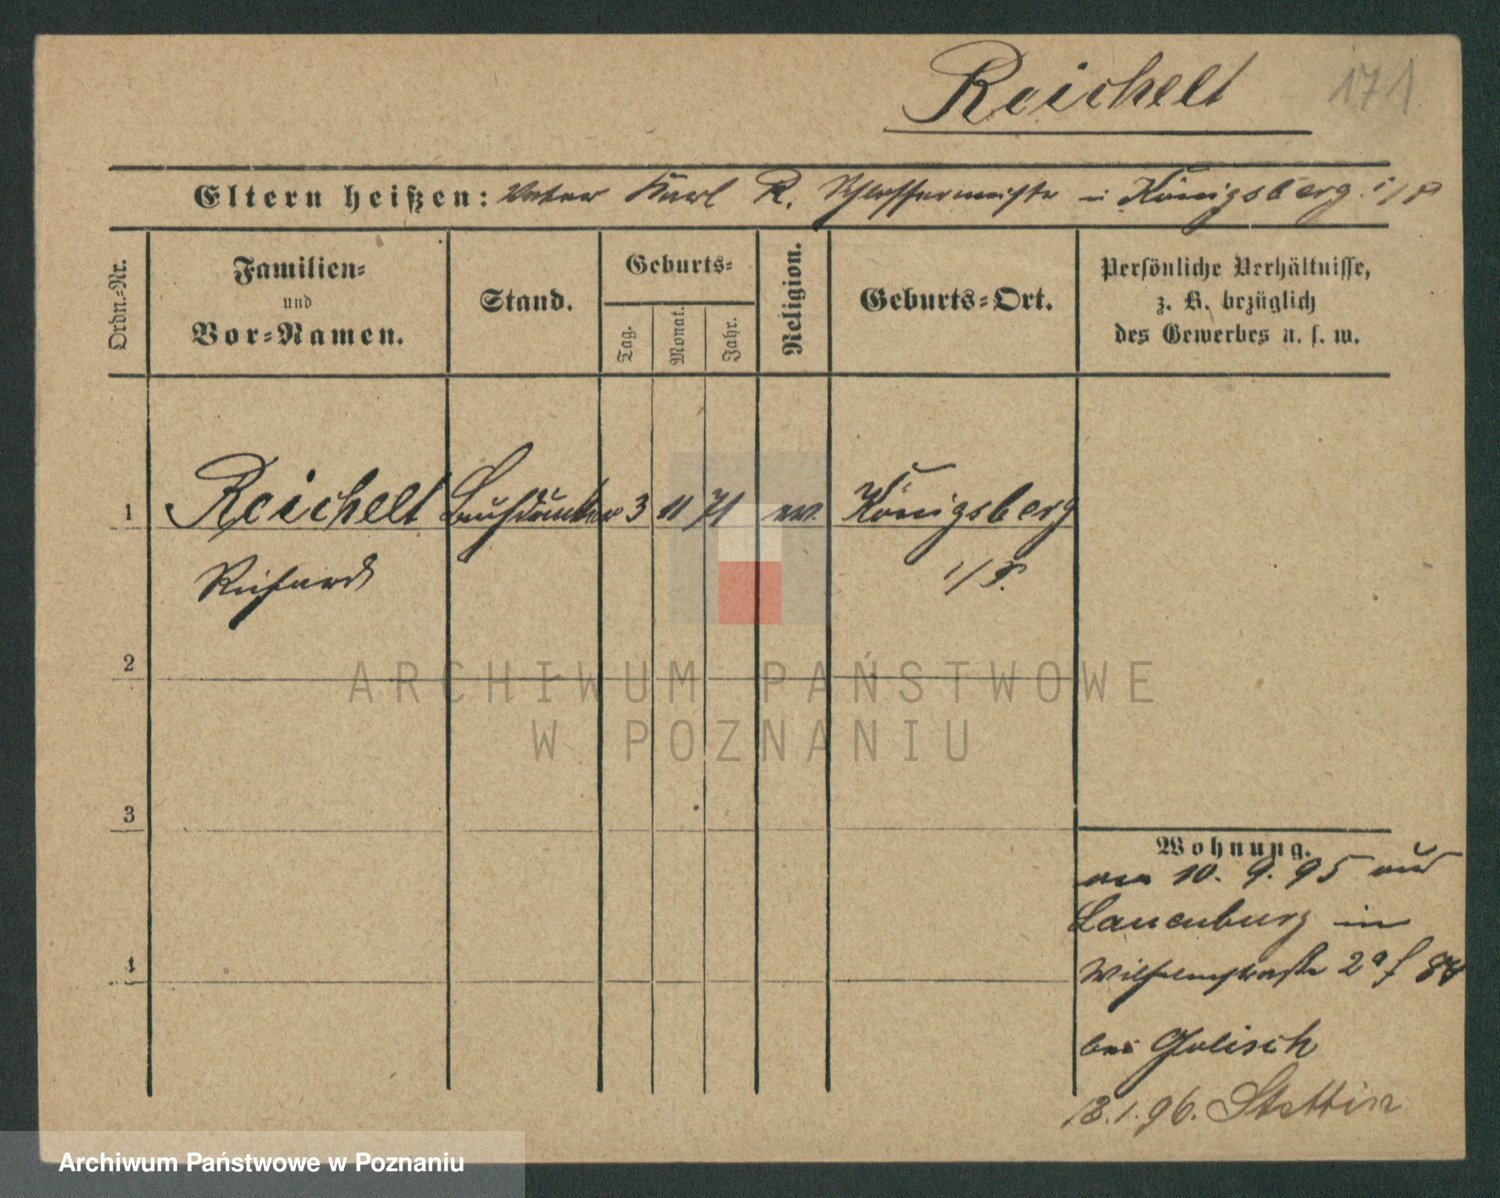 Reichelt 171
Eltern heißen: Vater Karl R. Schlossermeister in Königsberg i/P
Ordn.-Nr.
Familien-
und
Vor-Namen.
Stand.
Geburts-
Tag.
Monat.
Jahr.
Religion.
Geburts-Ort.
Persönliche Verhältnisse,
z. B. bezüglich
des Gewerbes u. s. w.
1 Reichelt Buchdrucker 3 11 71 ev. Königsberg
Richard i/P.
2
ARCHIWUM PAŃSTWOWE
W POZNANIU
3
Wohnung.
am 10. 9. 95 aus
Lauenburg in
4
Wilhelmstraße 2a
bei Golisch
18.1.96. Stettin
Archiwum Państwowe w Poznaniu